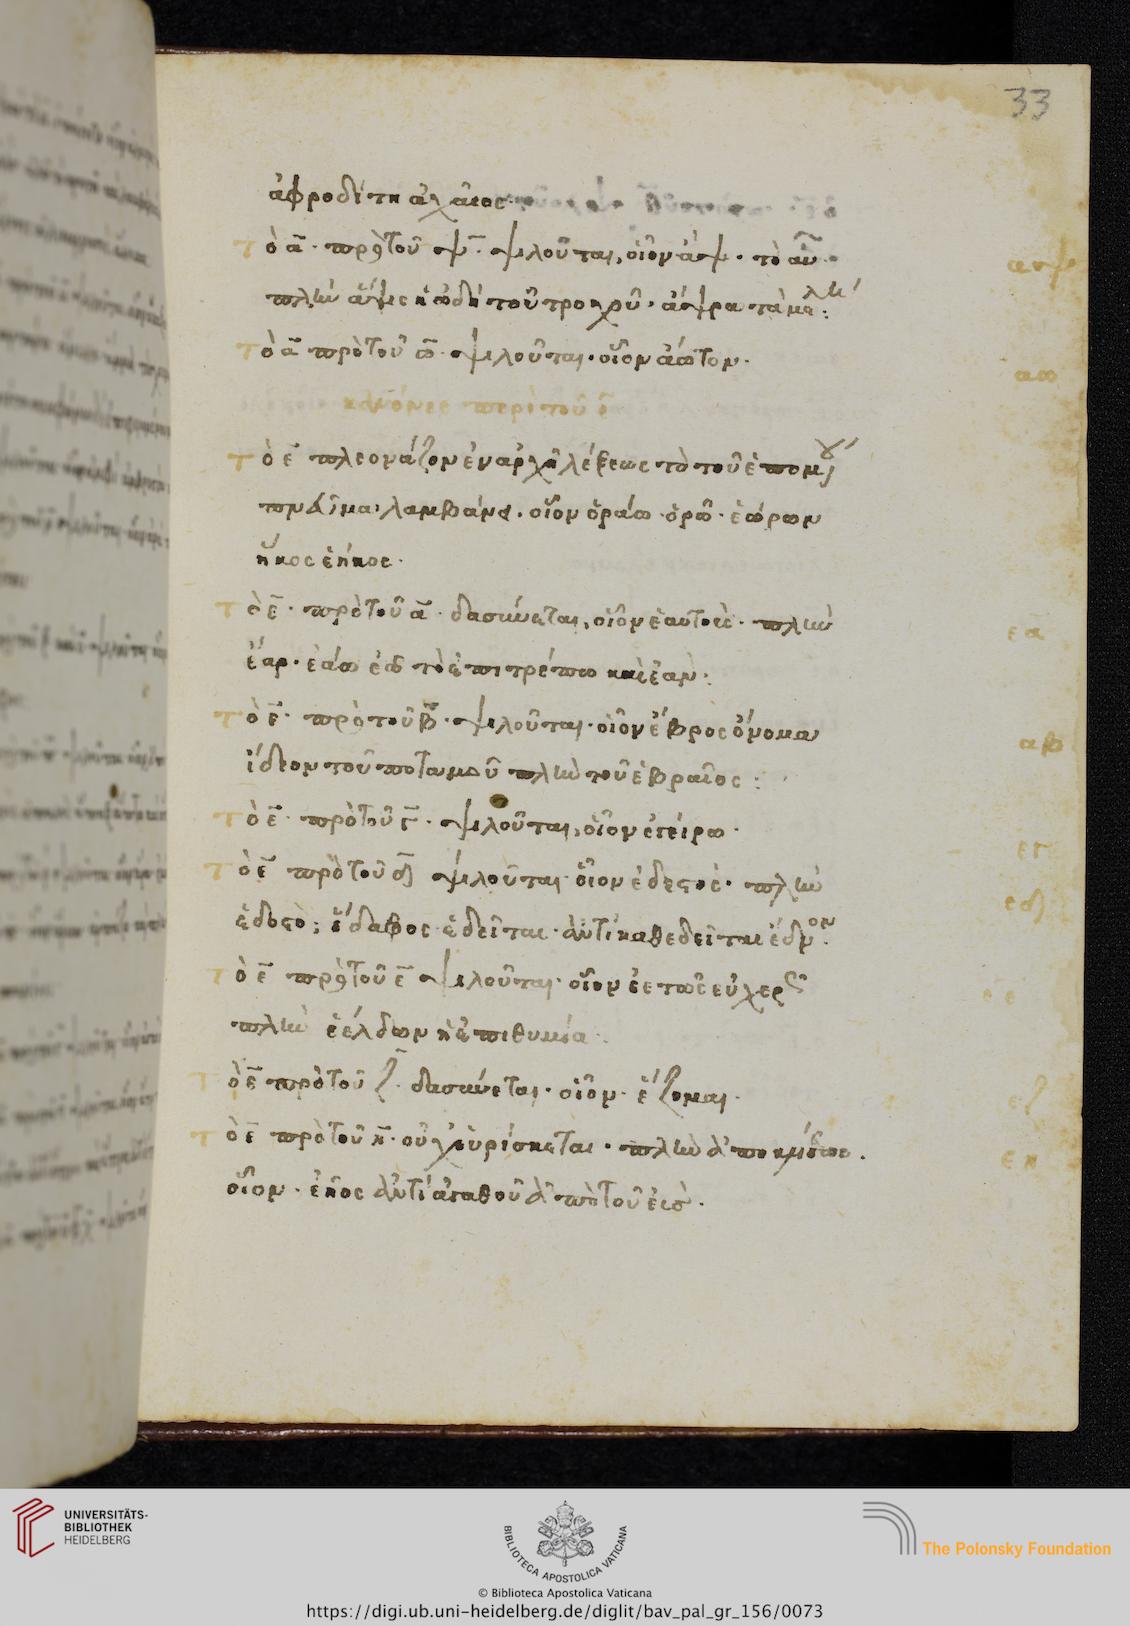 33
ἀφροδίτη ἀχαιος
τὸ ᾱ · πρὸ τοῦ ψ̄ · ψιλοῦται, οἷον ἀψ · τὸ αὖ ·
πλὴν ἅψις ἡ ὠδὴ τοῦ τροχοῦ · ἄψρα τὰ με
τὸ ᾱ πρὸ τοῦ ω̄ · ψιλοῦται · οἷον ἄωτον ·
κανόνες περὶ τοῦ ε̄
τὸ ε̄ πλεονάζον ἐν ἀρχῇ λέξεως τὸ τοῦ ἑπομ
πνεῦμα · λαμβάνει · οἷον ὁράω · ὁρῶ · ἑώρων
ἧκος ἑῆκος ·
τὸ ε̄ · πρὸ τοῦ ᾱ · δασύνεται, οἷον ἑαυτοῖς · πλὴν
ἔαρ · ἐάω ἐῶ τὸ ἐπιτρέπω καὶ ἐὰν :
τὸ ε̄ · πρὸ τοῦ β̄ · ψιλοῦται · οἷον ἔβρος ὄνομα
ἴδιον τοῦ ποταμοῦ πλὴν τοῦ ἑβραῖος :
τὸ ε̄ · πρὸ τοῦ γ̄ · ψιλοῦται, οἷον ἐγείρω ·
τὸ ε̄ πρὸ τοῦ δ̄ ψιλοῦται · οἷον ἐδεστός · πλὴν
ἔδαφος ἑδεῖται · ἀντὶ καθεδεῖται
τὸ ε̄ πρὸ τοῦ ε̄ ψιλοῦται · οἷον
πλὴν ἐέλδων ἡ ἐπιθυμία ·
τὸ ε̄ πρὸ τοῦ ζ̄ · δασύνεται · οἷον · ἕζομαι ·
τὸ ε̄ πρὸ τοῦ η̄ · οὐχ εὑρίσκεται · πλὴν
οἷον · ἐῆος ἀντὶ ἀγαθοῦ ἀπὸ τοῦ ·
αψ
αω
εα
αβ
εγ
εδ
εε
εζ
εη
UNIVERSITÄTS-
BIBLIOTHEK
HEIDELBERG
BIBLIOTECA APOSTOLICA VATICANA
The Polonsky Foundation
© Biblioteca Apostolica Vaticana
https://digi.ub.uni-heidelberg.de/diglit/bav_pal_gr_156/0073